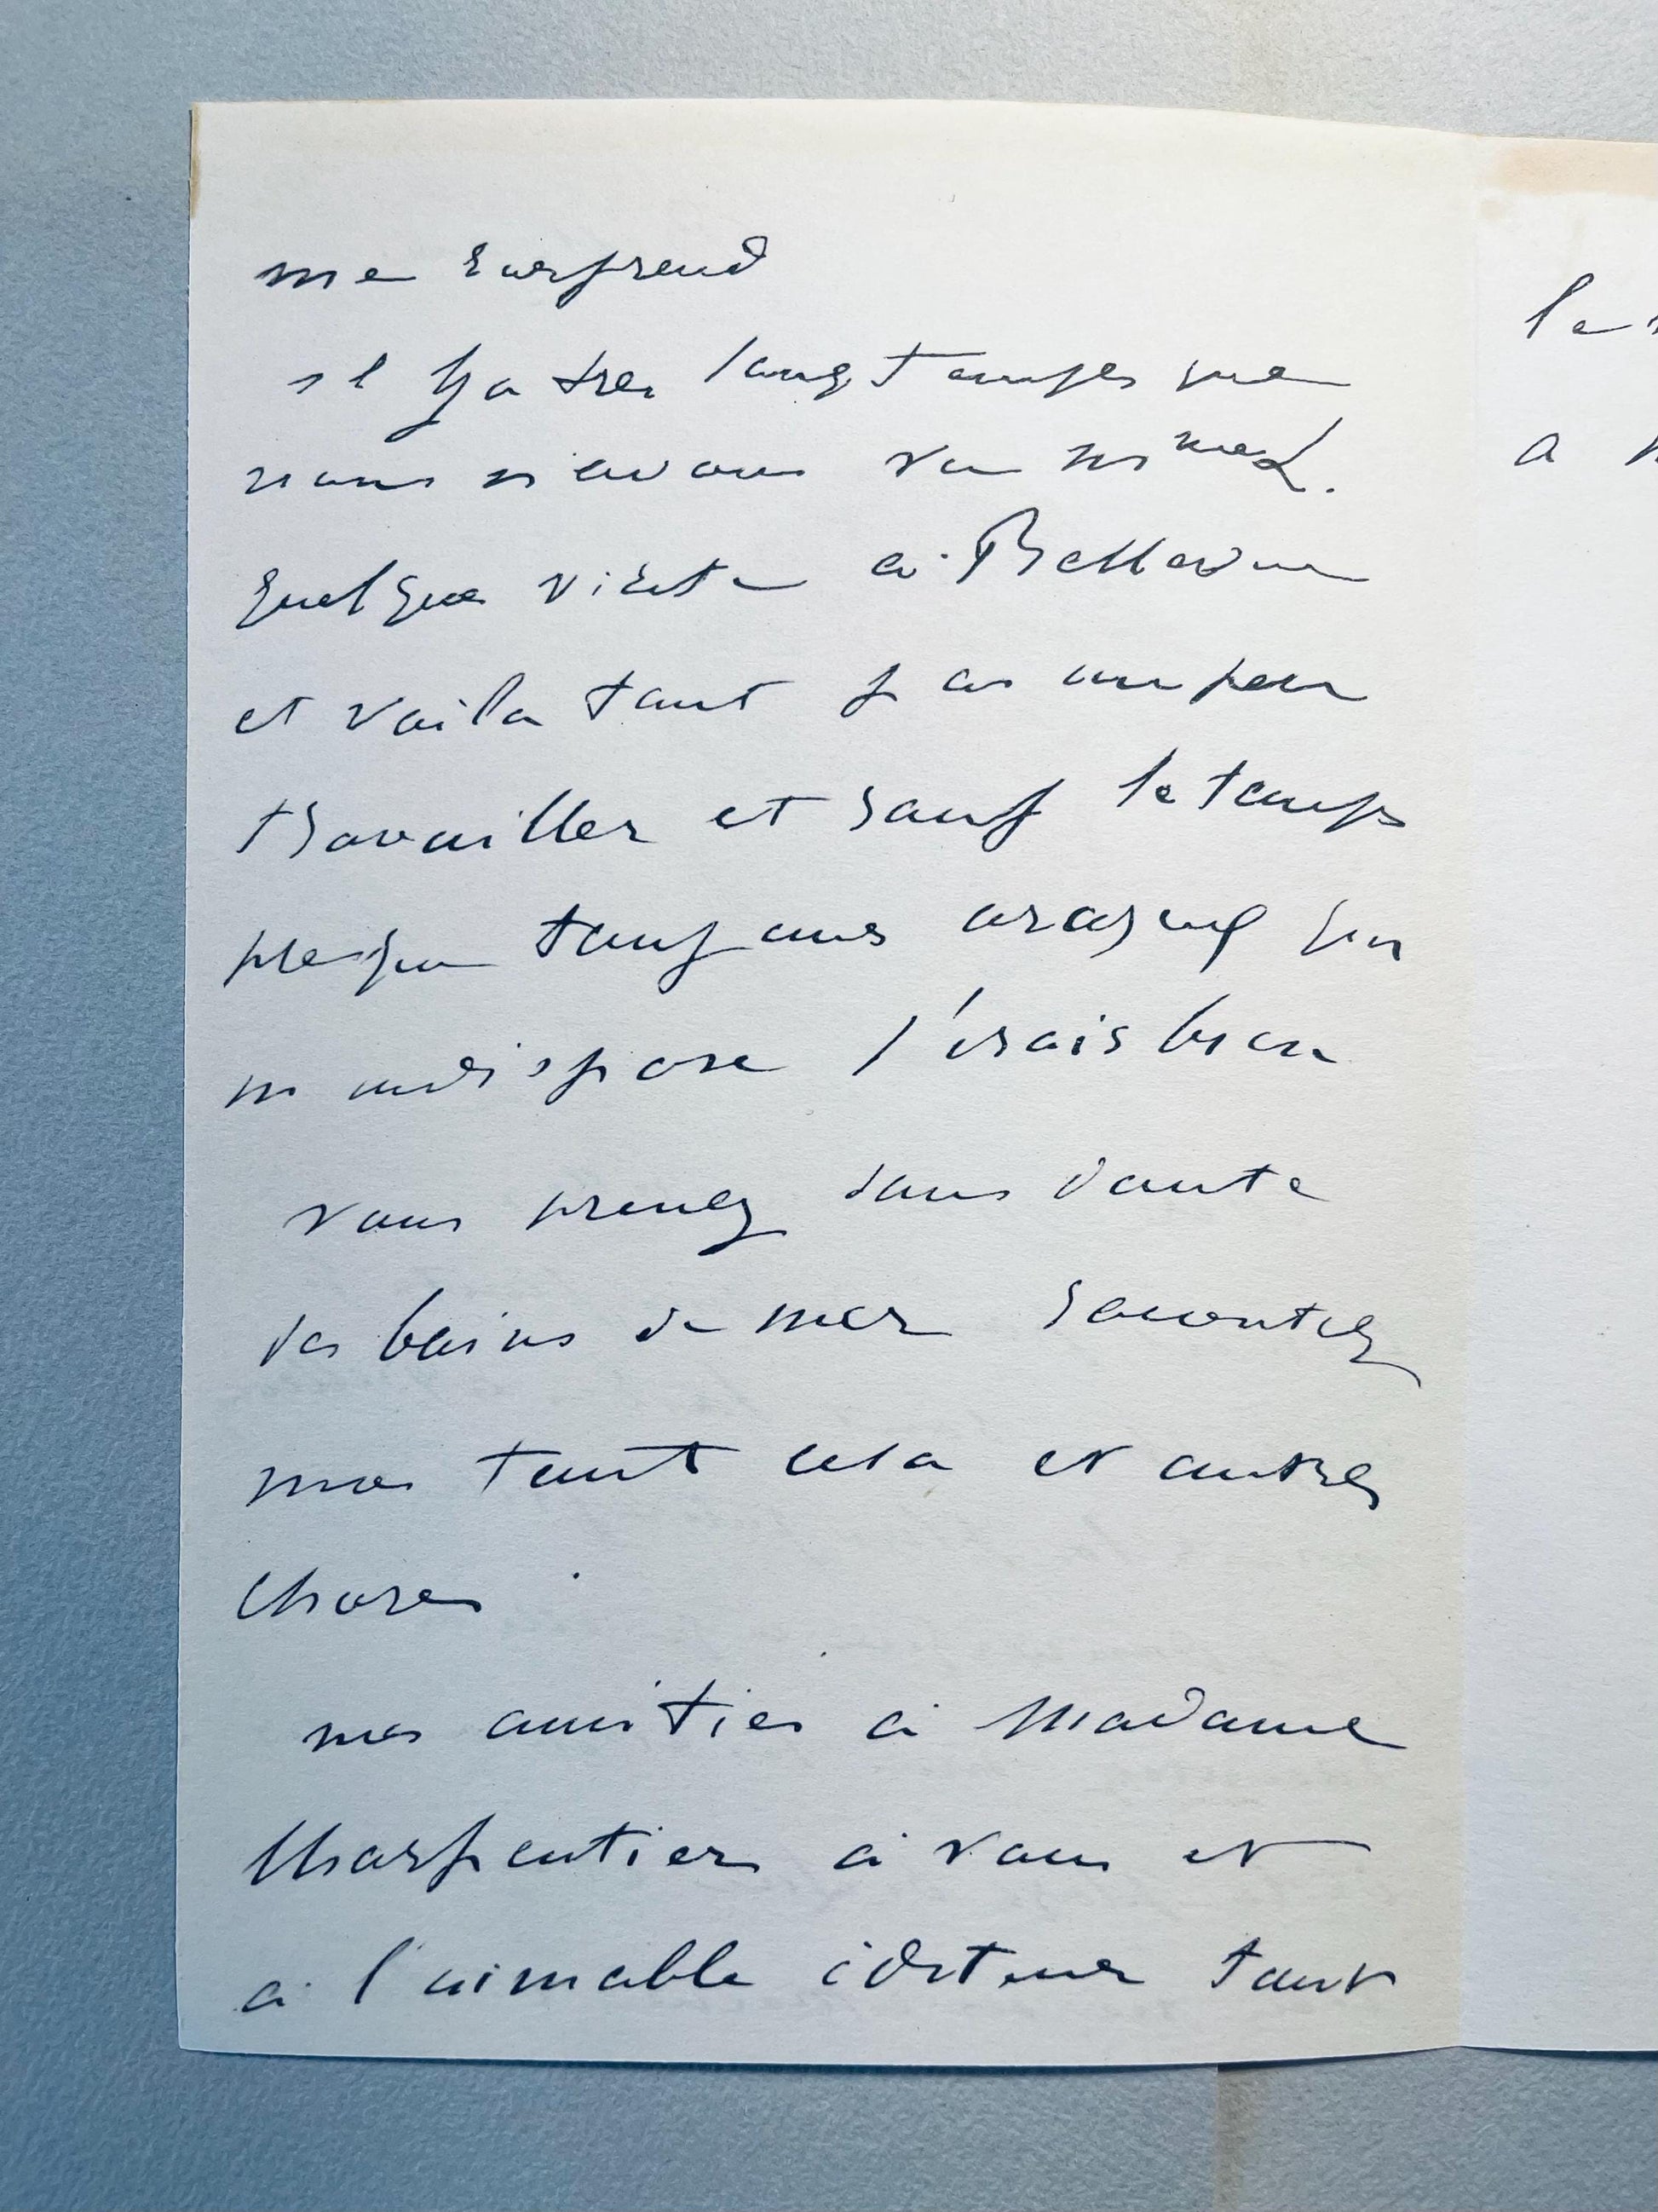 me surprend
il y a tres longtemps que
nous n'avons vu
quelque visite a Bellevue
et voila tout j ai un peu
travailler et sauf le temps
presque toujours orageux qui
m indispose j'irais bien
vous prenez sans doute
des bains de mer racontez
moi tout cela et autres
choses
mes amities a Madame
Charpentier a vous et
a l'aimable éditeur tout
le
a